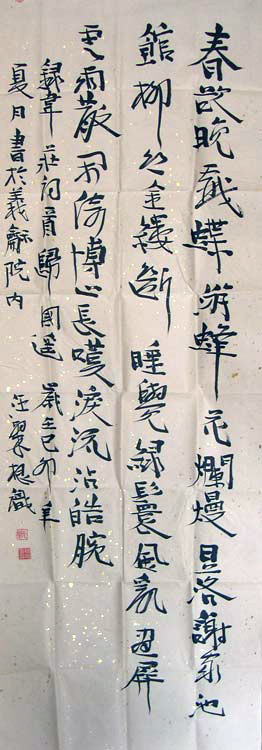 春欲晚戲蝶游蜂花爛熳日落謝家池
館柳絲金縷斷睡覺綠鬟風亂畫屏
雲雨散閒倚博山長嘆淚流沾皓腕
錄韋莊詞首歸國遙 歲在己卯年
夏月書於羲龢院内 汪